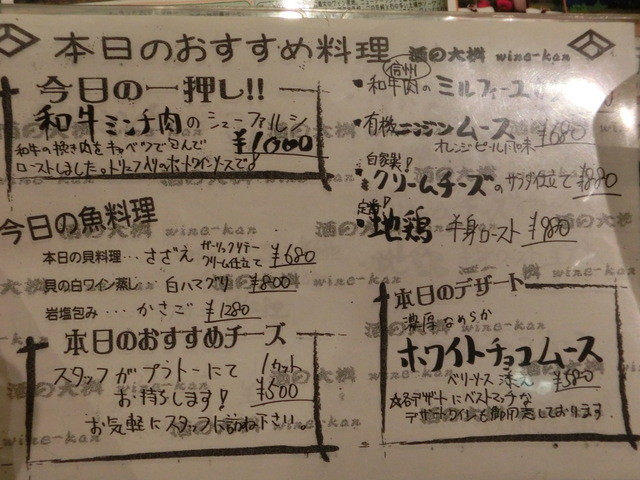 本日のおすすめ料理
酒の大桝 wine-kan
今日の一押し!!
和牛ミンチ肉のシューファルシ
¥1,000
和牛の挽き肉をキャベツで包んで
ローストしました。トリュフ入りのポートワインソースで!
信州
・和牛肉のミルフィーユ
・有機ニンジンムース ¥680
オレンジピール風味
自家製!
・クリームチーズのサラダ仕立て ¥880
定番!
・地鶏 半身ロースト ¥980
今日の魚料理
本日の貝料理…さざえ ガーリックソテー クリーム仕立て ¥680
貝の白ワイン蒸し 白ハマグリ ¥800
岩塩包み… かさご ¥1280
本日のおすすめチーズ
スタッフがプラトーにて
お持ちします!
1カット
¥500
お気軽にスタッフに訪ね下さい。
本日のデザート
濃厚なめらか
ホワイトチョコムース
ベリーソース添え ¥580
☆各デザートにベストマッチな
デザートワインも御用意しております